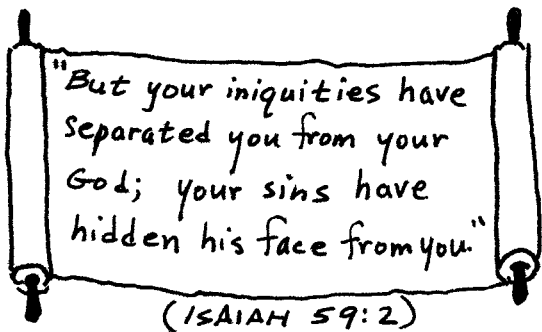 "But your iniquities have
separated you from your
God; your sins have
hidden his face from you."
(ISAIAH 59:2)